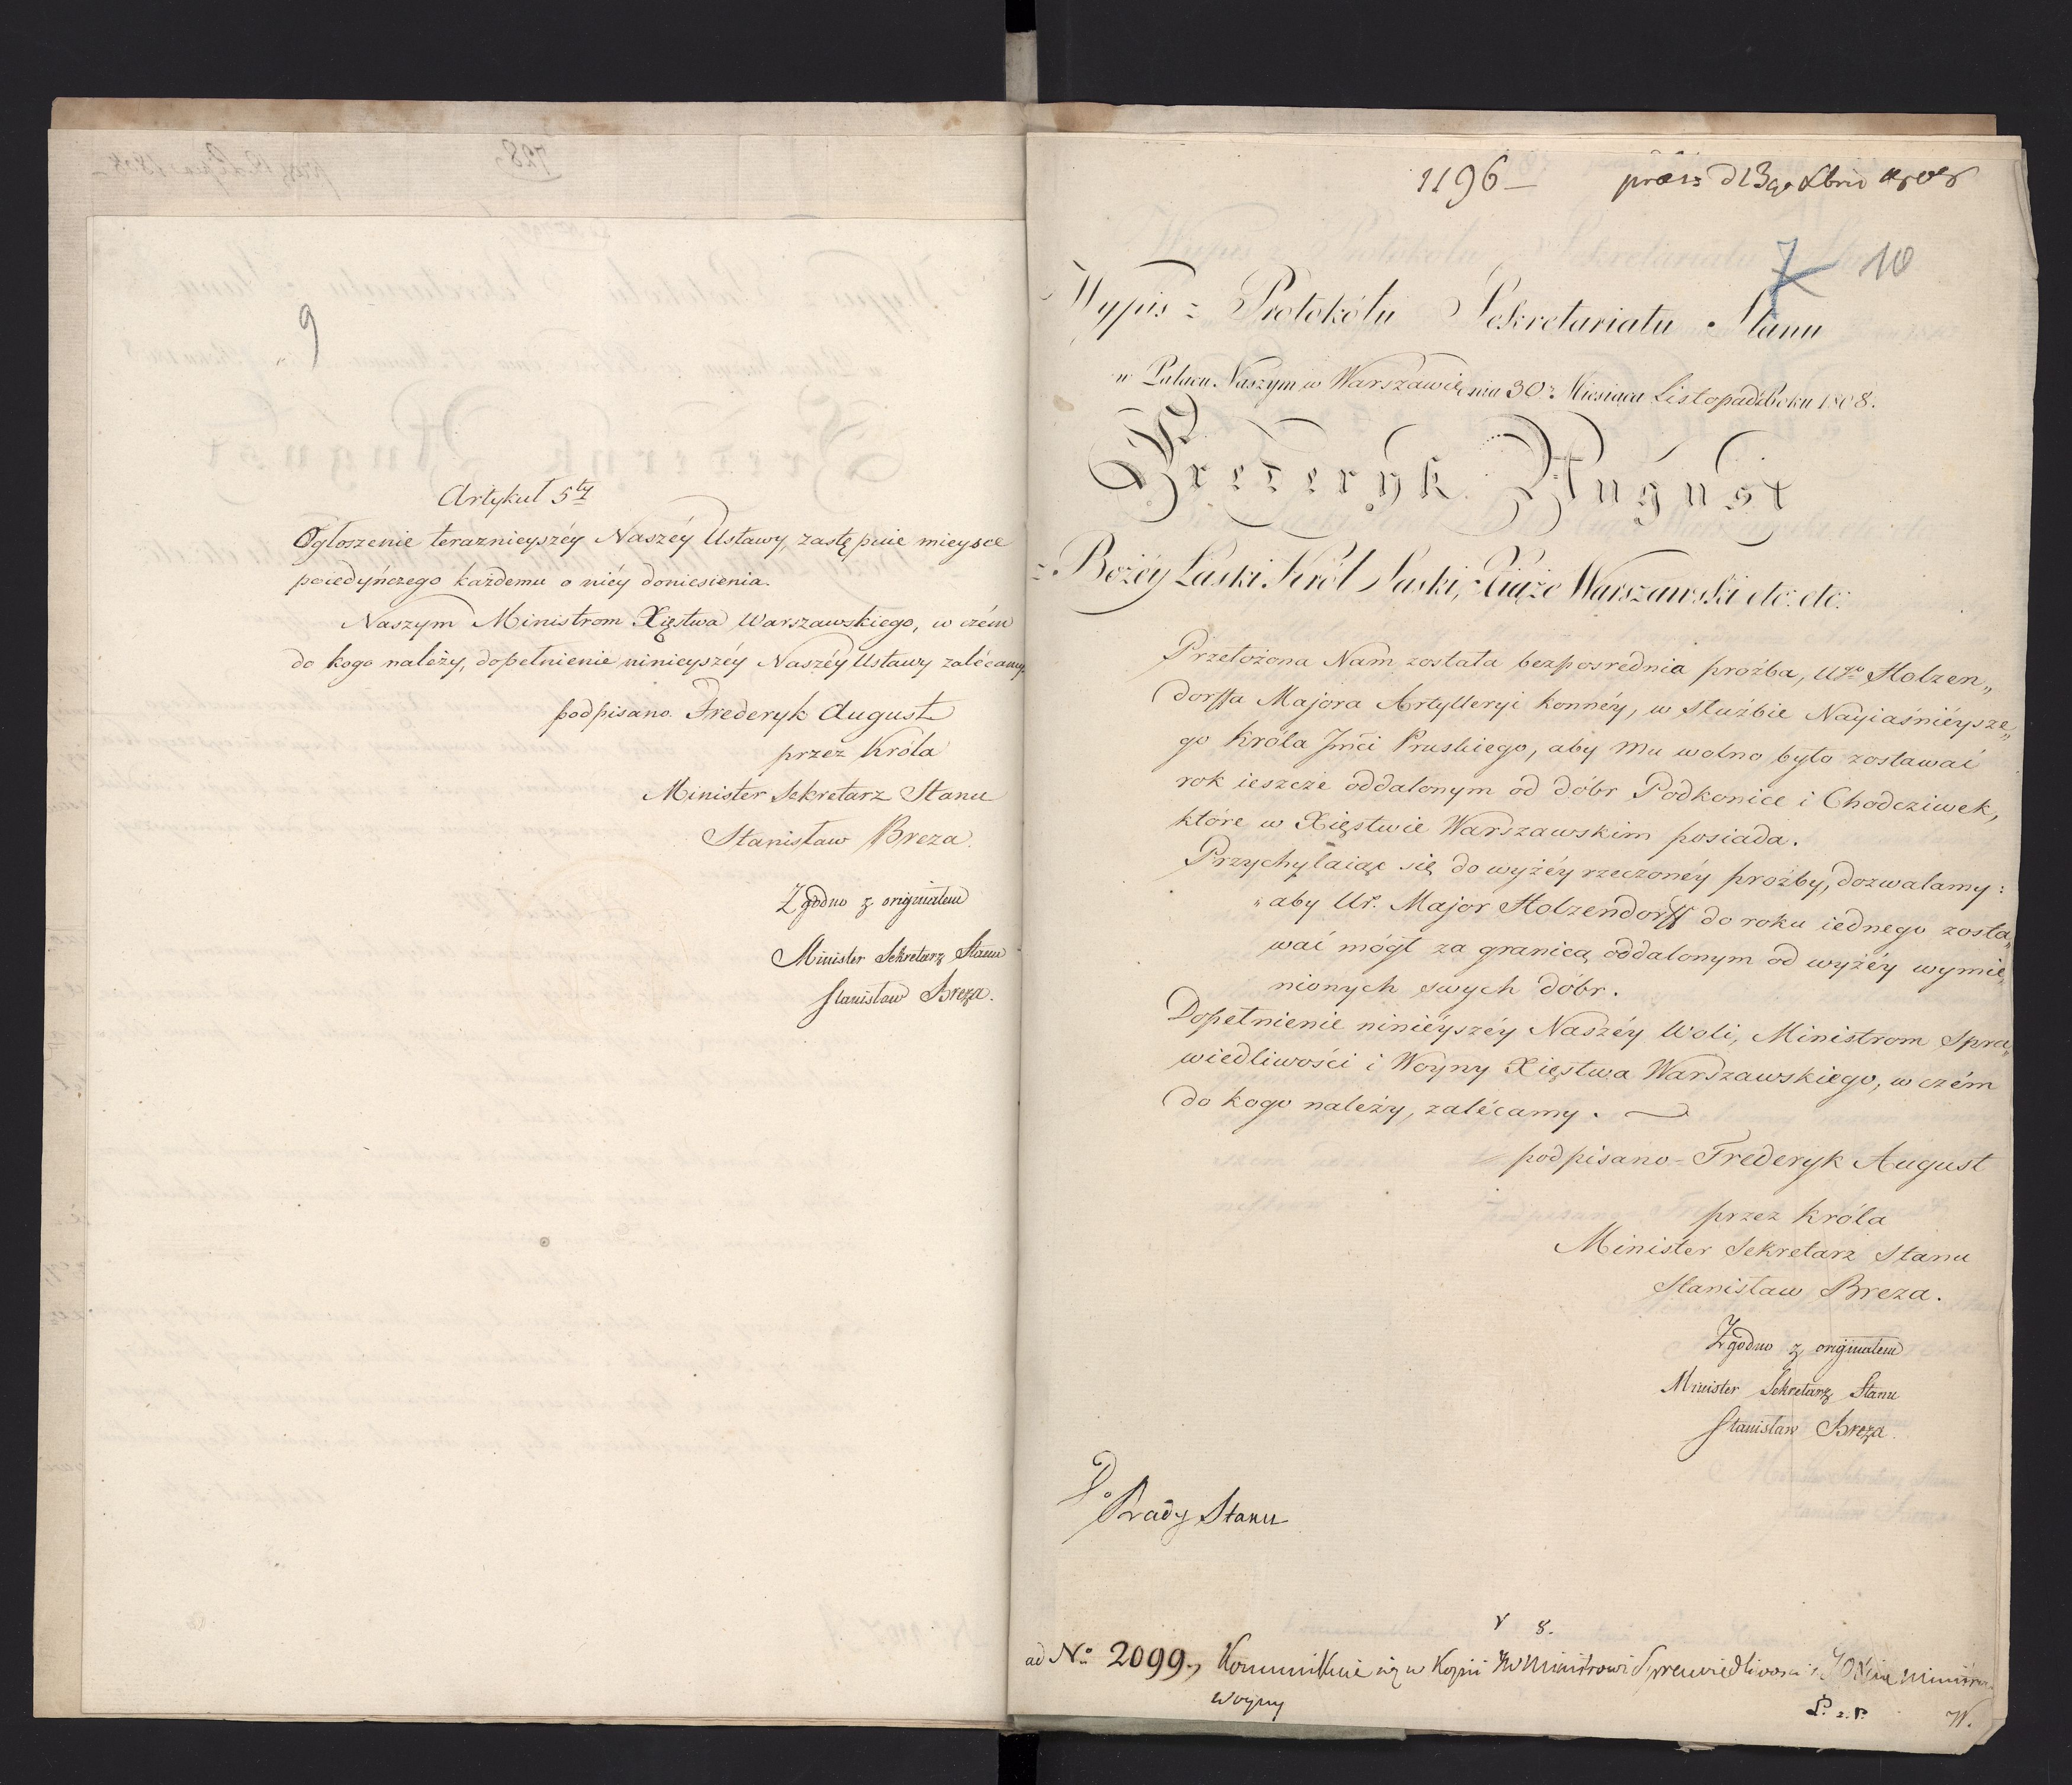 9
Artykuł 5ty
Ogłoszenie teraznieyszéy Naszéy Ustawy, zastępuie mieysce
poiedyńczego każdemu o niéy doniesienia.
Naszym Ministrom Xięstwa Warszawskiego, w czém
do kogo należy, dopełnienie ninieyszéy Naszéy Ustawy zalécamy.
podpisano. Frederyk August
przez Króla
Minister Sekretarz Stanu
Stanisław Breza.
Zgodno z originałem
Minister Sekretarz Stanu
Stanisław Breza.
1196 –
7 10
Wypis z Protokółu Sekretariatu Stanu
w Pałacu Naszym w Warszawie dnia 30o Miesiąca Listopada Roku 1808.
Frederyk August
z Bożéy Łaski Król Saski, Xiąże Warszawski etc. etc.
Przełożona Nam została bezpośrednia proźba, Ugo Holzen„
dorffa Majora Artylleryi konnéy, w służbie Nayiaśniéysze„
go Króla Jmći Pruskiego, aby mu wolno było zostawać
rok ieszcze oddalonym od dóbr Podkonice i Chodcziwek,
które w Xięstwie Warszawskim posiada.
Przychylaiąc się do wyżéy rzeczonéy proźby, dozwalamy:
„aby Ur. Major Holzendorff do roku iednego zosta„
wać mógł za granicą oddalonym od wyżéy wymie„
nionych swych dóbr.
Dopełnienie niniéyszéy Naszéy Woli, Ministrom Spra„
wiedliwości i Woyny Xięstwa Warszawskiego, w czém
do kogo należy, zalécamy.
podpisano – Frederyk August
przez Króla
Minister Sekretarz Stanu
Stanisław Breza.
Zgodno z originałem
Minister Sekretarz Stanu
Stanisław Breza.
Do
Rady Stanu
ad No 2099., Kommunikuie się w Kopii JW Ministrowi Sprawiedliwości i
Woyny